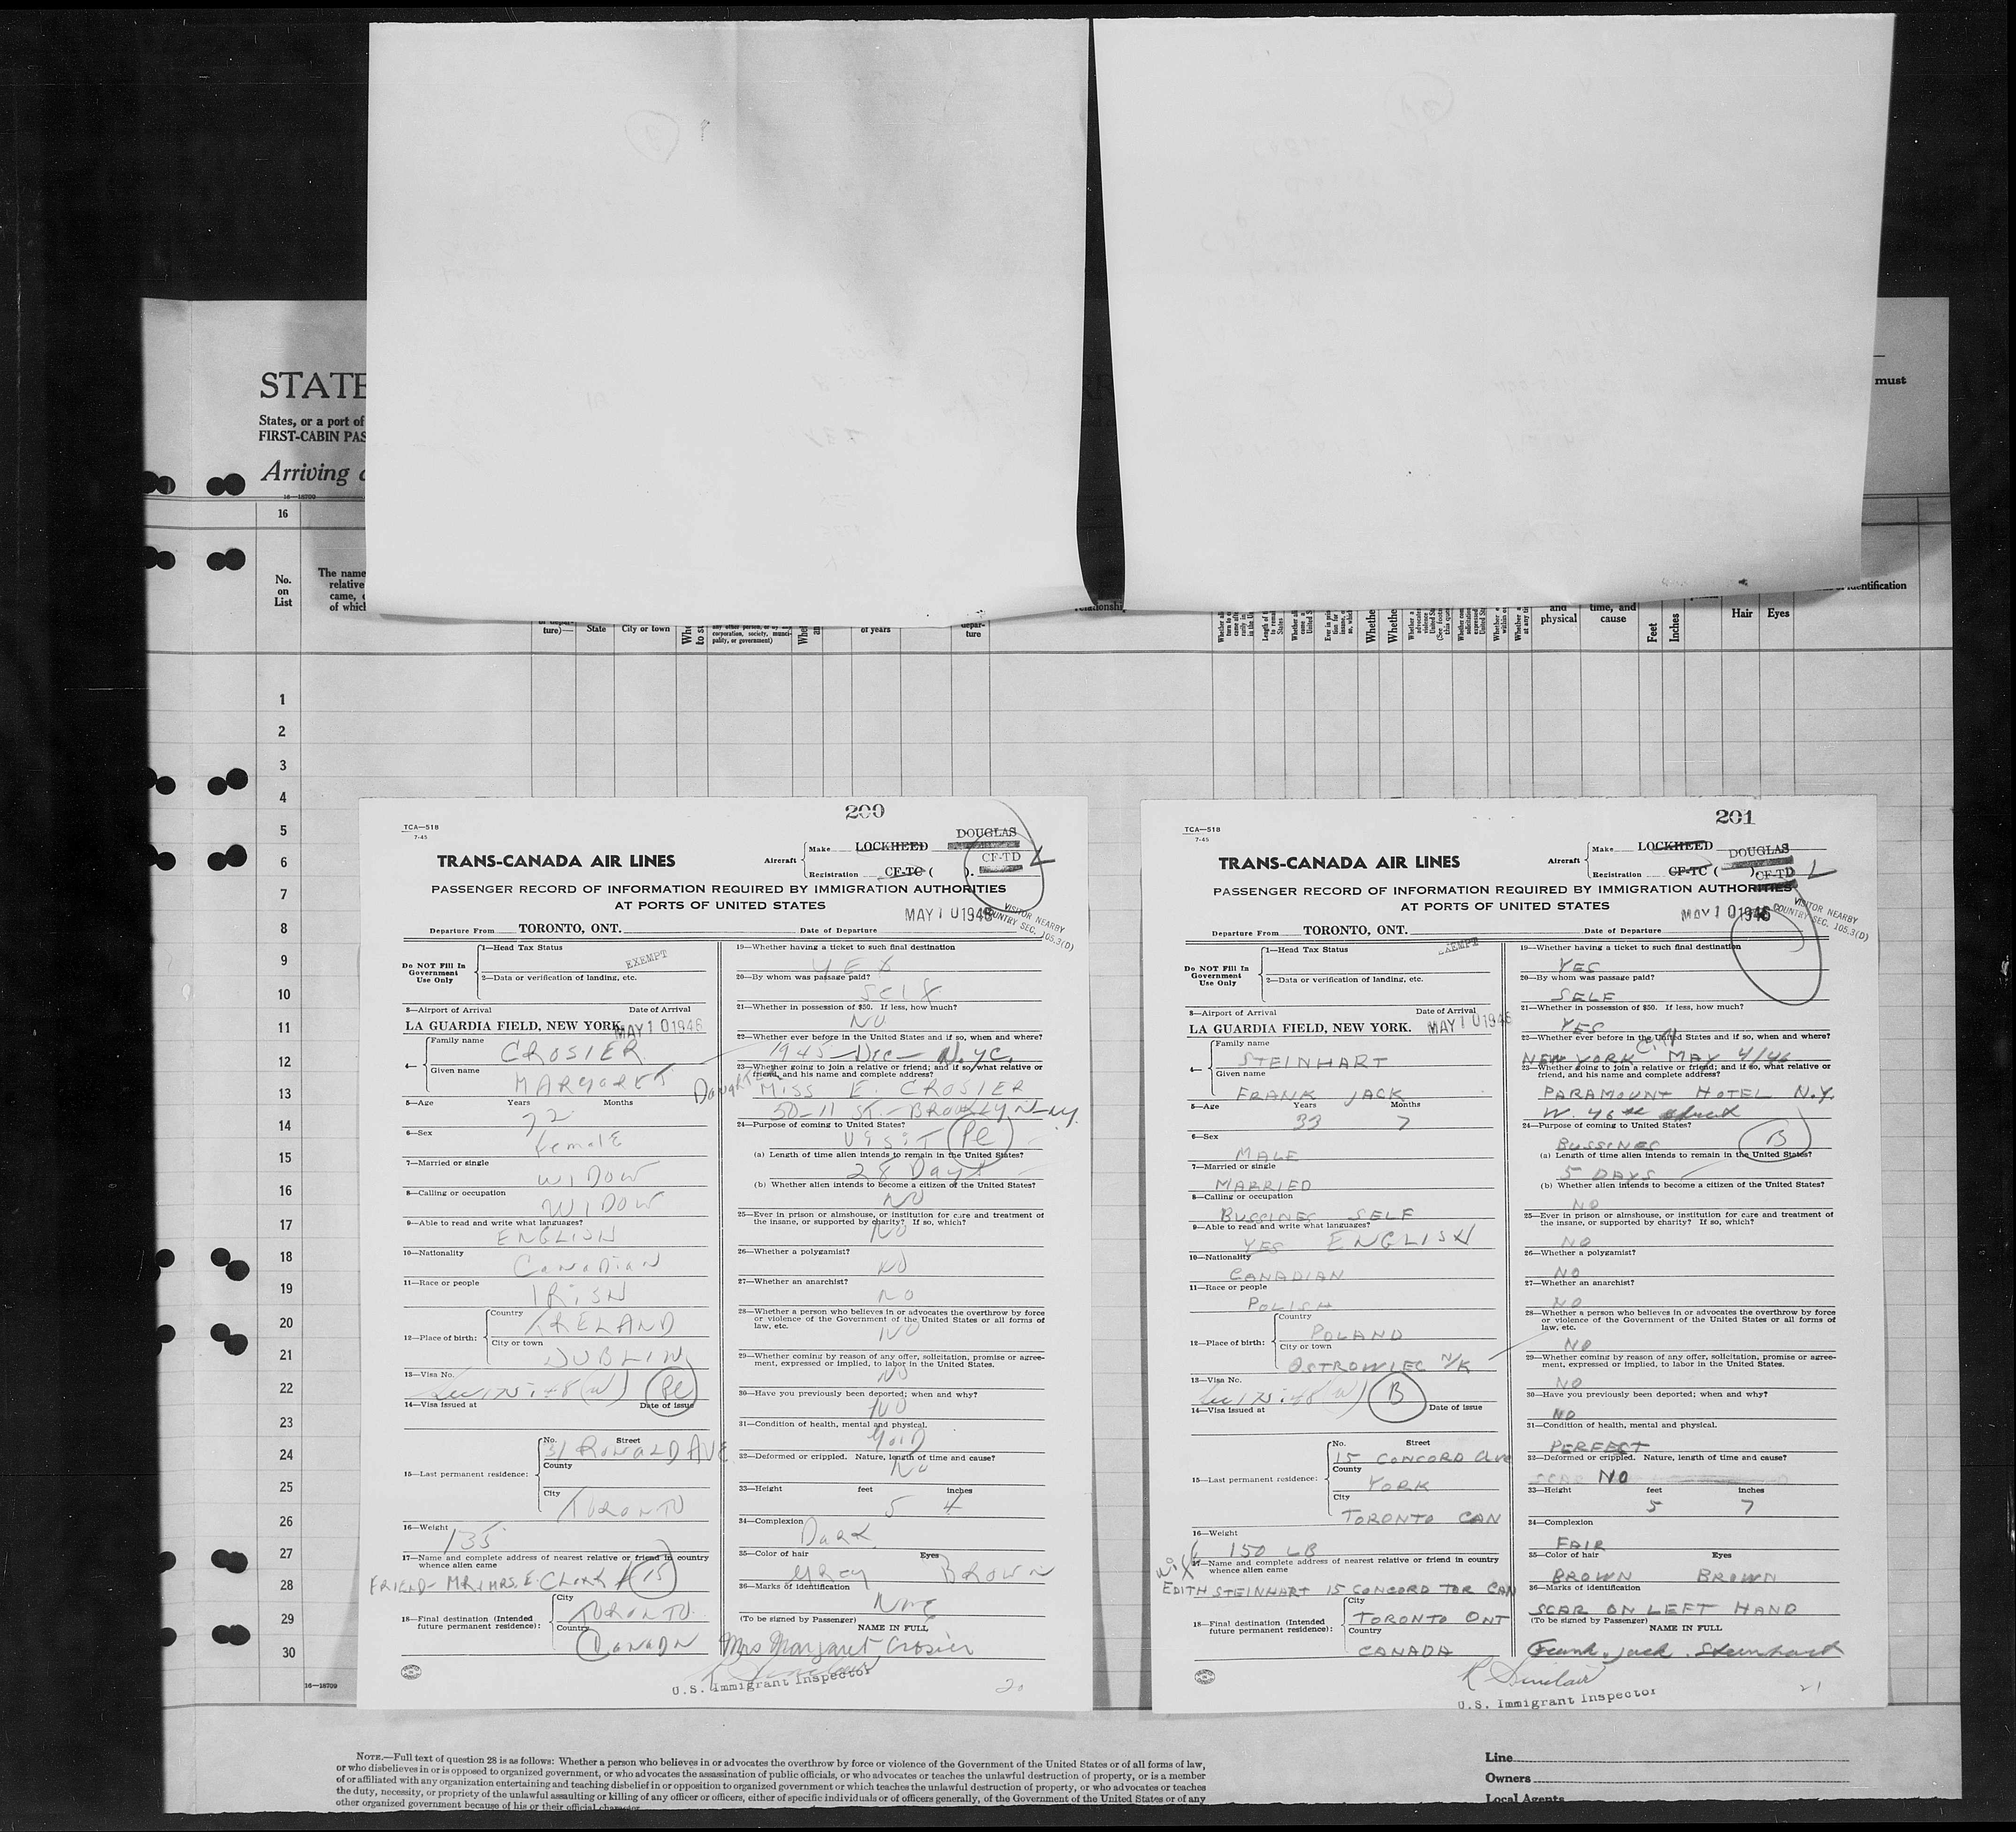 STATE
States, or a port of
FIRST-CABIN PAS
Arriving
must
16—18709
16
No.
on
List
The name
relative
came,
of which
ture)—
State
City or town
any other person, or by any
corporation, society, munici-
pality, or government)
of years
depar-
ture
relationship
and
physical
time, and
cause
Feet
Inches
Hair
Eyes
identification
1
2
3
4
5
6
7
8
9
10
11
12
13
14
15
16
17
18
19
20
21
22
23
24
25
26
27
28
29
30
16—18709
200
TCA—518
7-45
TRANS-CANADA AIR LINES
Aircraft
Make LOCKHEED DOUGLAS
Registration CF-TC ( ). CF-TD
PASSENGER RECORD OF INFORMATION REQUIRED BY IMMIGRATION AUTHORITIES
AT PORTS OF UNITED STATES
MAY 10 1946
VISITOR NEARBY
COUNTRY SEC. 105.3(D)
Departure From TORONTO, ONT. Date of Departure
Do NOT Fill In
Government
Use Only
1—Head Tax Status
EXEMPT
2—Data or verification of landing, etc.
3—Airport of Arrival Date of Arrival
LA GUARDIA FIELD, NEW YORK. MAY 10 1946
4—
Family name
CROSIER
Given name
MARGARET
5—Age Years Months
72
6—Sex
Female
7—Married or single
WIDOW
8—Calling or occupation
WIDOW
9—Able to read and write what languages?
ENGLISH
10—Nationality
Canadian
11—Race or people
IRISH
12—Place of birth:
Country
IRELAND
City or town
DUBLIN
13—Visa No.
Sec 175.48 (W) Pl
14—Visa issued at Date of issue
15—Last permanent residence:
No. Street
31 RONALD AVE
County
City
TORONTO
16—Weight
135
17—Name and complete address of nearest relative or friend in country
whence alien came
FRIEND - MR & MRS. E. Clark 15
18—Final destination (Intended
future permanent residence):
City
TORONTO
Country
CANADA
19—Whether having a ticket to such final destination
YES
20—By whom was passage paid?
Self
21—Whether in possession of $50. If less, how much?
NO
22—Whether ever before in the United States and if so, when and where?
1945 - Dec - N.Y.C.
23—Whether going to join a relative or friend; and if so, what relative or
friend, and his name and complete address?
Daughter
MISS E. CROSIER
50-11 ST. - BROOKLYN - N.Y.
24—Purpose of coming to United States?
VISIT Pl
(a) Length of time alien intends to remain in the United States?
28 Days
(b) Whether alien intends to become a citizen of the United States?
NO
25—Ever in prison or almshouse, or institution for care and treatment of
the insane, or supported by charity? If so, which?
NO
26—Whether a polygamist?
NO
27—Whether an anarchist?
NO
28—Whether a person who believes in or advocates the overthrow by force
or violence of the Government of the United States or all forms of
law, etc.
NO
29—Whether coming by reason of any offer, solicitation, promise or agree-
ment, expressed or implied, to labor in the United States.
NO
30—Have you previously been deported; when and why?
NO
31—Condition of health, mental and physical.
GOOD
32—Deformed or crippled. Nature, length of time and cause?
NO
33—Height feet inches
5 4
34—Complexion
Dark
35—Color of hair Eyes
Grey Brown
36—Marks of identification
None
(To be signed by Passenger) NAME IN FULL
Mrs Margaret Crosier
R Sinclair
U.S. Immigrant Inspector
20
201
TCA—518
7-45
TRANS-CANADA AIR LINES
Aircraft
Make LOCKHEED DOUGLAS
Registration CF-TC ( ) CF-TD
PASSENGER RECORD OF INFORMATION REQUIRED BY IMMIGRATION AUTHORITIES
AT PORTS OF UNITED STATES
MAY 10 1946
VISITOR NEARBY
COUNTRY SEC. 105.3(D)
Departure From TORONTO, ONT. Date of Departure
Do NOT Fill In
Government
Use Only
1—Head Tax Status
EXEMPT
2—Data or verification of landing, etc.
3—Airport of Arrival Date of Arrival
LA GUARDIA FIELD, NEW YORK. MAY 10 1946
4—
Family name
STEINHART
Given name
FRANK JACK
5—Age Years Months
33 7
6—Sex
MALE
7—Married or single
MARRIED
8—Calling or occupation
BUSSINES SELF
9—Able to read and write what languages?
YES ENGLISH
10—Nationality
CANADIAN
11—Race or people
POLISH
12—Place of birth:
Country
POLAND
City or town
OSTROWIEC N/K
13—Visa No.
Sec 175.48 (W) B
14—Visa issued at Date of issue
15—Last permanent residence:
No. Street
15 CONCORD ave
County
YORK
City
TORONTO CAN
16—Weight
150 LB
17—Name and complete address of nearest relative or friend in country
whence alien came
Wife
EDITH STEINHART 15 CONCORD TOR CAN
18—Final destination (Intended
future permanent residence):
City
TORONTO ONT
Country
CANADA
19—Whether having a ticket to such final destination
YES
20—By whom was passage paid?
SELF
21—Whether in possession of $50. If less, how much?
YES
22—Whether ever before in the United States and if so, when and where?
NEW YORK MAY 4/46
23—Whether going to join a relative or friend; and if so, what relative or
friend, and his name and complete address?
PARAMOUNT HOTEL N.Y.
W. 46th street
24—Purpose of coming to United States?
BUSSINES B
(a) Length of time alien intends to remain in the United States?
5 DAYS
(b) Whether alien intends to become a citizen of the United States?
NO
25—Ever in prison or almshouse, or institution for care and treatment of
the insane, or supported by charity? If so, which?
NO
26—Whether a polygamist?
NO
27—Whether an anarchist?
NO
28—Whether a person who believes in or advocates the overthrow by force
or violence of the Government of the United States or all forms of
law, etc.
NO
29—Whether coming by reason of any offer, solicitation, promise or agree-
ment, expressed or implied, to labor in the United States.
NO
30—Have you previously been deported; when and why?
NO
31—Condition of health, mental and physical.
PERFECT
32—Deformed or crippled. Nature, length of time and cause?
NO
33—Height feet inches
5 7
34—Complexion
FAIR
35—Color of hair Eyes
BROWN BROWN
36—Marks of identification
SCAR ON LEFT HAND
(To be signed by Passenger) NAME IN FULL
Frank. Jack. Steinhart
R Sinclair
U.S. Immigrant Inspector
21
NOTE.—Full text of question 28 is as follows: Whether a person who believes in or advocates the overthrow by force or violence of the Government of the United States or of all forms of law,
or who disbelieves in or is opposed to organized government, or who advocates the assassination of public officials, or who advocates or teaches the unlawful destruction of property, or is a member
of or affiliated with any organization entertaining and teaching disbelief in or opposition to organized government or which teaches the unlawful destruction of property, or who advocates or teaches
the duty, necessity, or propriety of the unlawful assaulting or killing of any officer or officers, either of specific individuals or of officers generally, of the Government of the United States or of any
other organized government because of his or their official character.
Line
Owners
Local Agents